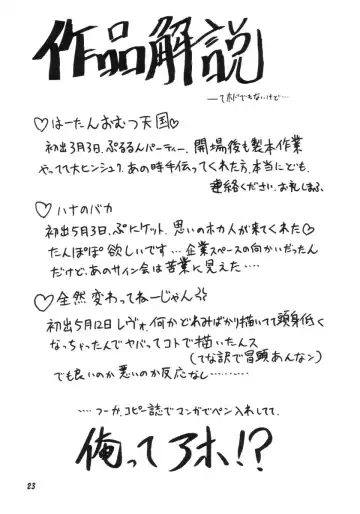 作品解説
──てホドでもないけど…
♡はーたんおむつ天国♡
初出3月3日、ぷるるんパーティー、開場後も製本作業
やってて大ヒンシュク。あの時手伝ってくれた方、本当にども。
連絡ください。お礼しまふ。
♡ハナのバカ
初出5月3日、ぷにケット、思いのホカ人が来てくれた♡
たんぽぽ欲しいです…企業スペースの向かいだったん
だけど、あのサイン会は苦業に見えた…
♡全然変わってねーじゃん
初出5月12日レヴォ。何かどれみばかり描いてて頭身低く
なっちゃったんでヤバってコトで描いたんス
(てな訳で冒頭あんな>)
でも良いのか悪いのか反応なし………
…つーか、コピー誌でマンガでペン入れしてて、
俺ってアホ!?
23